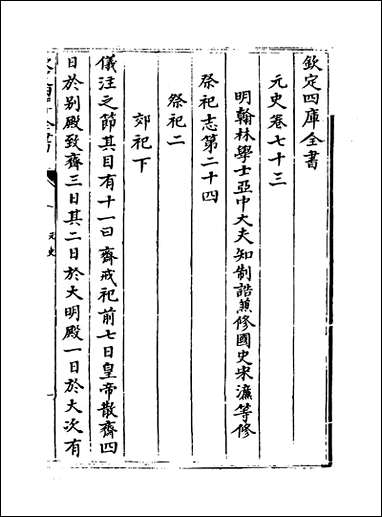 欽定四庫全書
元史卷七十三
明翰林學士亞中大夫知制誥兼修國史宋濂等修
祭祀志第二十四
祭祀二
郊祀下
儀注之節其目有十一曰齋戒祀前七日皇帝散齋四
日於别殿致齊三日其二日於大明殿一日於大次有
元史